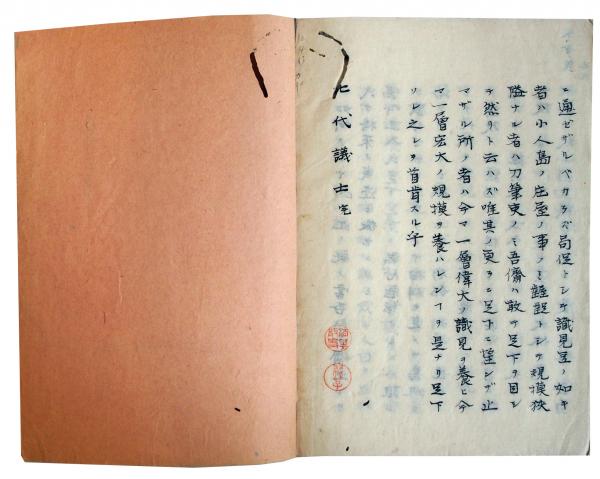 ニ通ゼザルベカラズ局促トシテ識見豆ノ如キ
者ハ小人島ノ庄屋ノ事ノミ齷齪トシテ規模狭
隘ナル者ハ刀筆吏ノミ吾儕ハ敢テ足下ヲ目シ
テ然リト云ハズ唯其ノ更ラニ足下ニ望ンデ止
マザル所ノ者ハ今マ一層偉大ノ識見ヲ養ヒ今
マ一層宏大ノ規摸ヲ養ハレンヿヲ是ナリ足下
ソレ之レヲ首肯スル乎
代議士宅